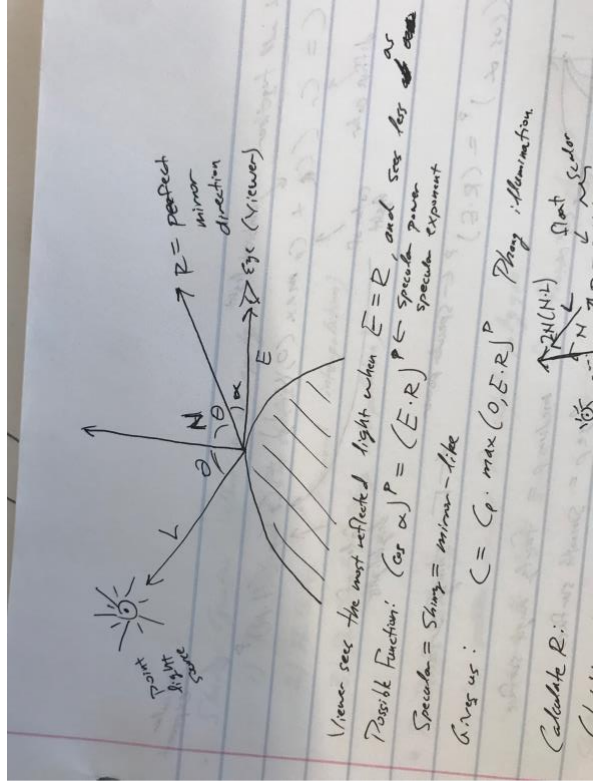 Point
light
source
L
θ
N
θ
R = perfect
mirror
direction
α
Eye (Viewer)
E
Viewer sees the most reflected light when E = R and sees less as
Possible Function: (cos α)^P = (E·R)^P ← specular power
specular exponent
Specular = Shiny = mirror-like
Gives us: C = Cp · max(0, E·R)^P Phong illumination
Calculate R:
2N(N·L)
L
N
float
scalar